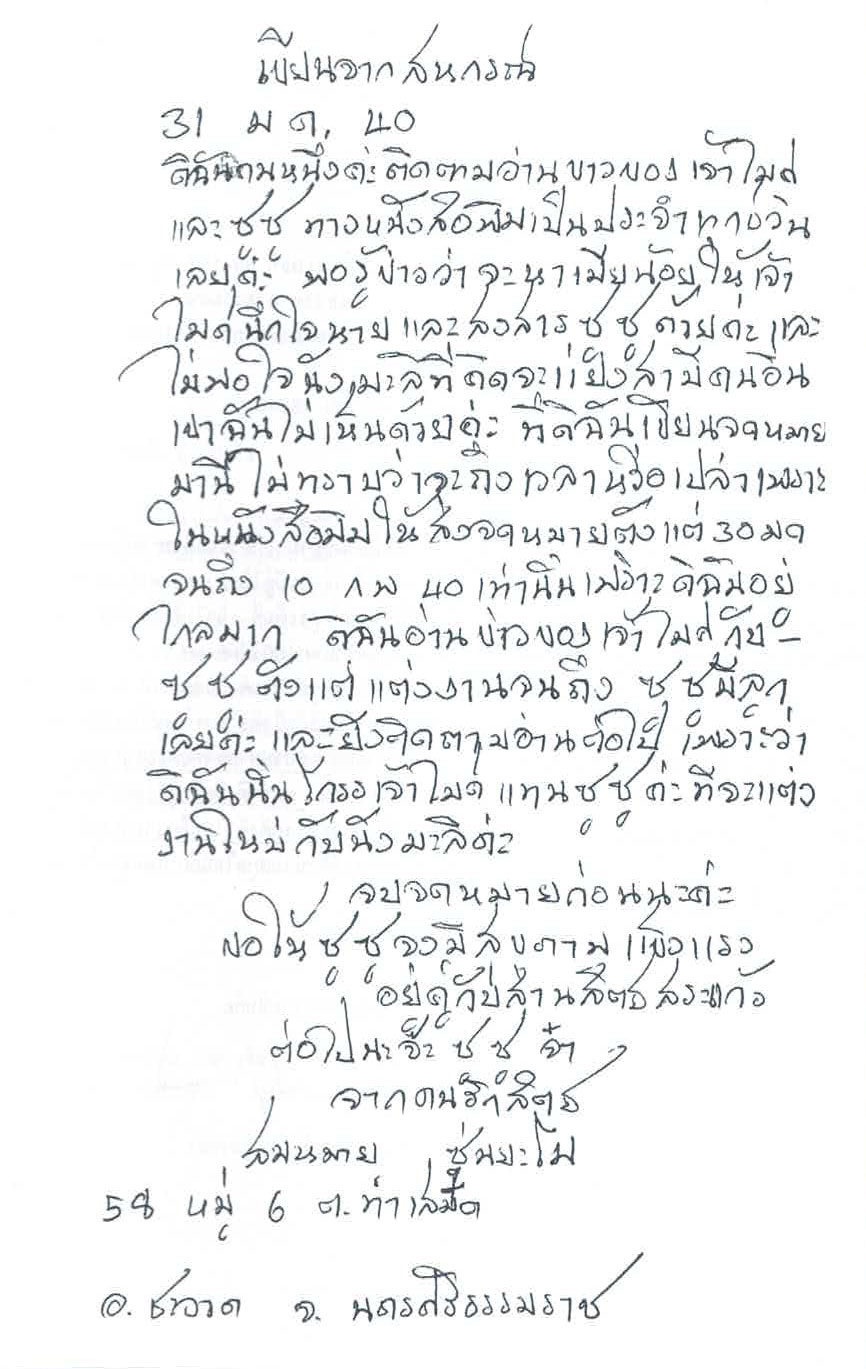 เขียนจากสหกรณ์
31 ม ค. 40
ดิฉันคนหนึ่งค่ะติดตามอ่านข่าวของเจ้าไมค์
และซูซู ทางหนังสือพิมเป็นประจำทุกวัน
เลยค่ะ พอรู้ข่าวว่าจะหาเมียน้อยให้เจ้า
ไมค์นึกใจหาย และสงสารซูซูด้วยค่ะ และ
ไม่พอใจนังมะลิที่คิดจะแย่งสามีคนอื่น
เขาฉันไม่เห็นด้วยค่ะ ที่ดิฉันเขียนจดหมาย
มานี้ไม่ทราบว่าจะถึงเวลาหรือเปล่าเพราะ
ในหนังสือพิมให้ส่งจดหมายตั้งแต่ 30 มค
จนถึง 10 ก พ 40 เท่านั้นเพราะดิฉันอยู่
ไกลมาก ดิฉันอ่านข่าวของเจ้าไมค์กับ–
ซูซู ตั้งแต่แต่งงานจนถึง ซูซูมีลูก
เลยค่ะ และยังติดตามอ่านต่อไป เพราะว่า
ดิฉันนั้นโกรธเจ้าไมค์ แทนซูซูค่ะที่จะแต่ง
งานใหม่กับนังมะลิค่ะ
จบจดหมายก่อนนะค่ะ
ขอให้ซูซูจงมีสุขภาพแข็งแรง
อยู่คู่กับสวนสัตว์สระแก้ว
ต่อไปนะจ๊ะ ซูซู จ๋า
จากคนรักสัตว์
สมหมาย
58 หมู่ 6 ต. ท่าเสม็ด
อ. ชะอวด จ. นครศรีธรรมราช